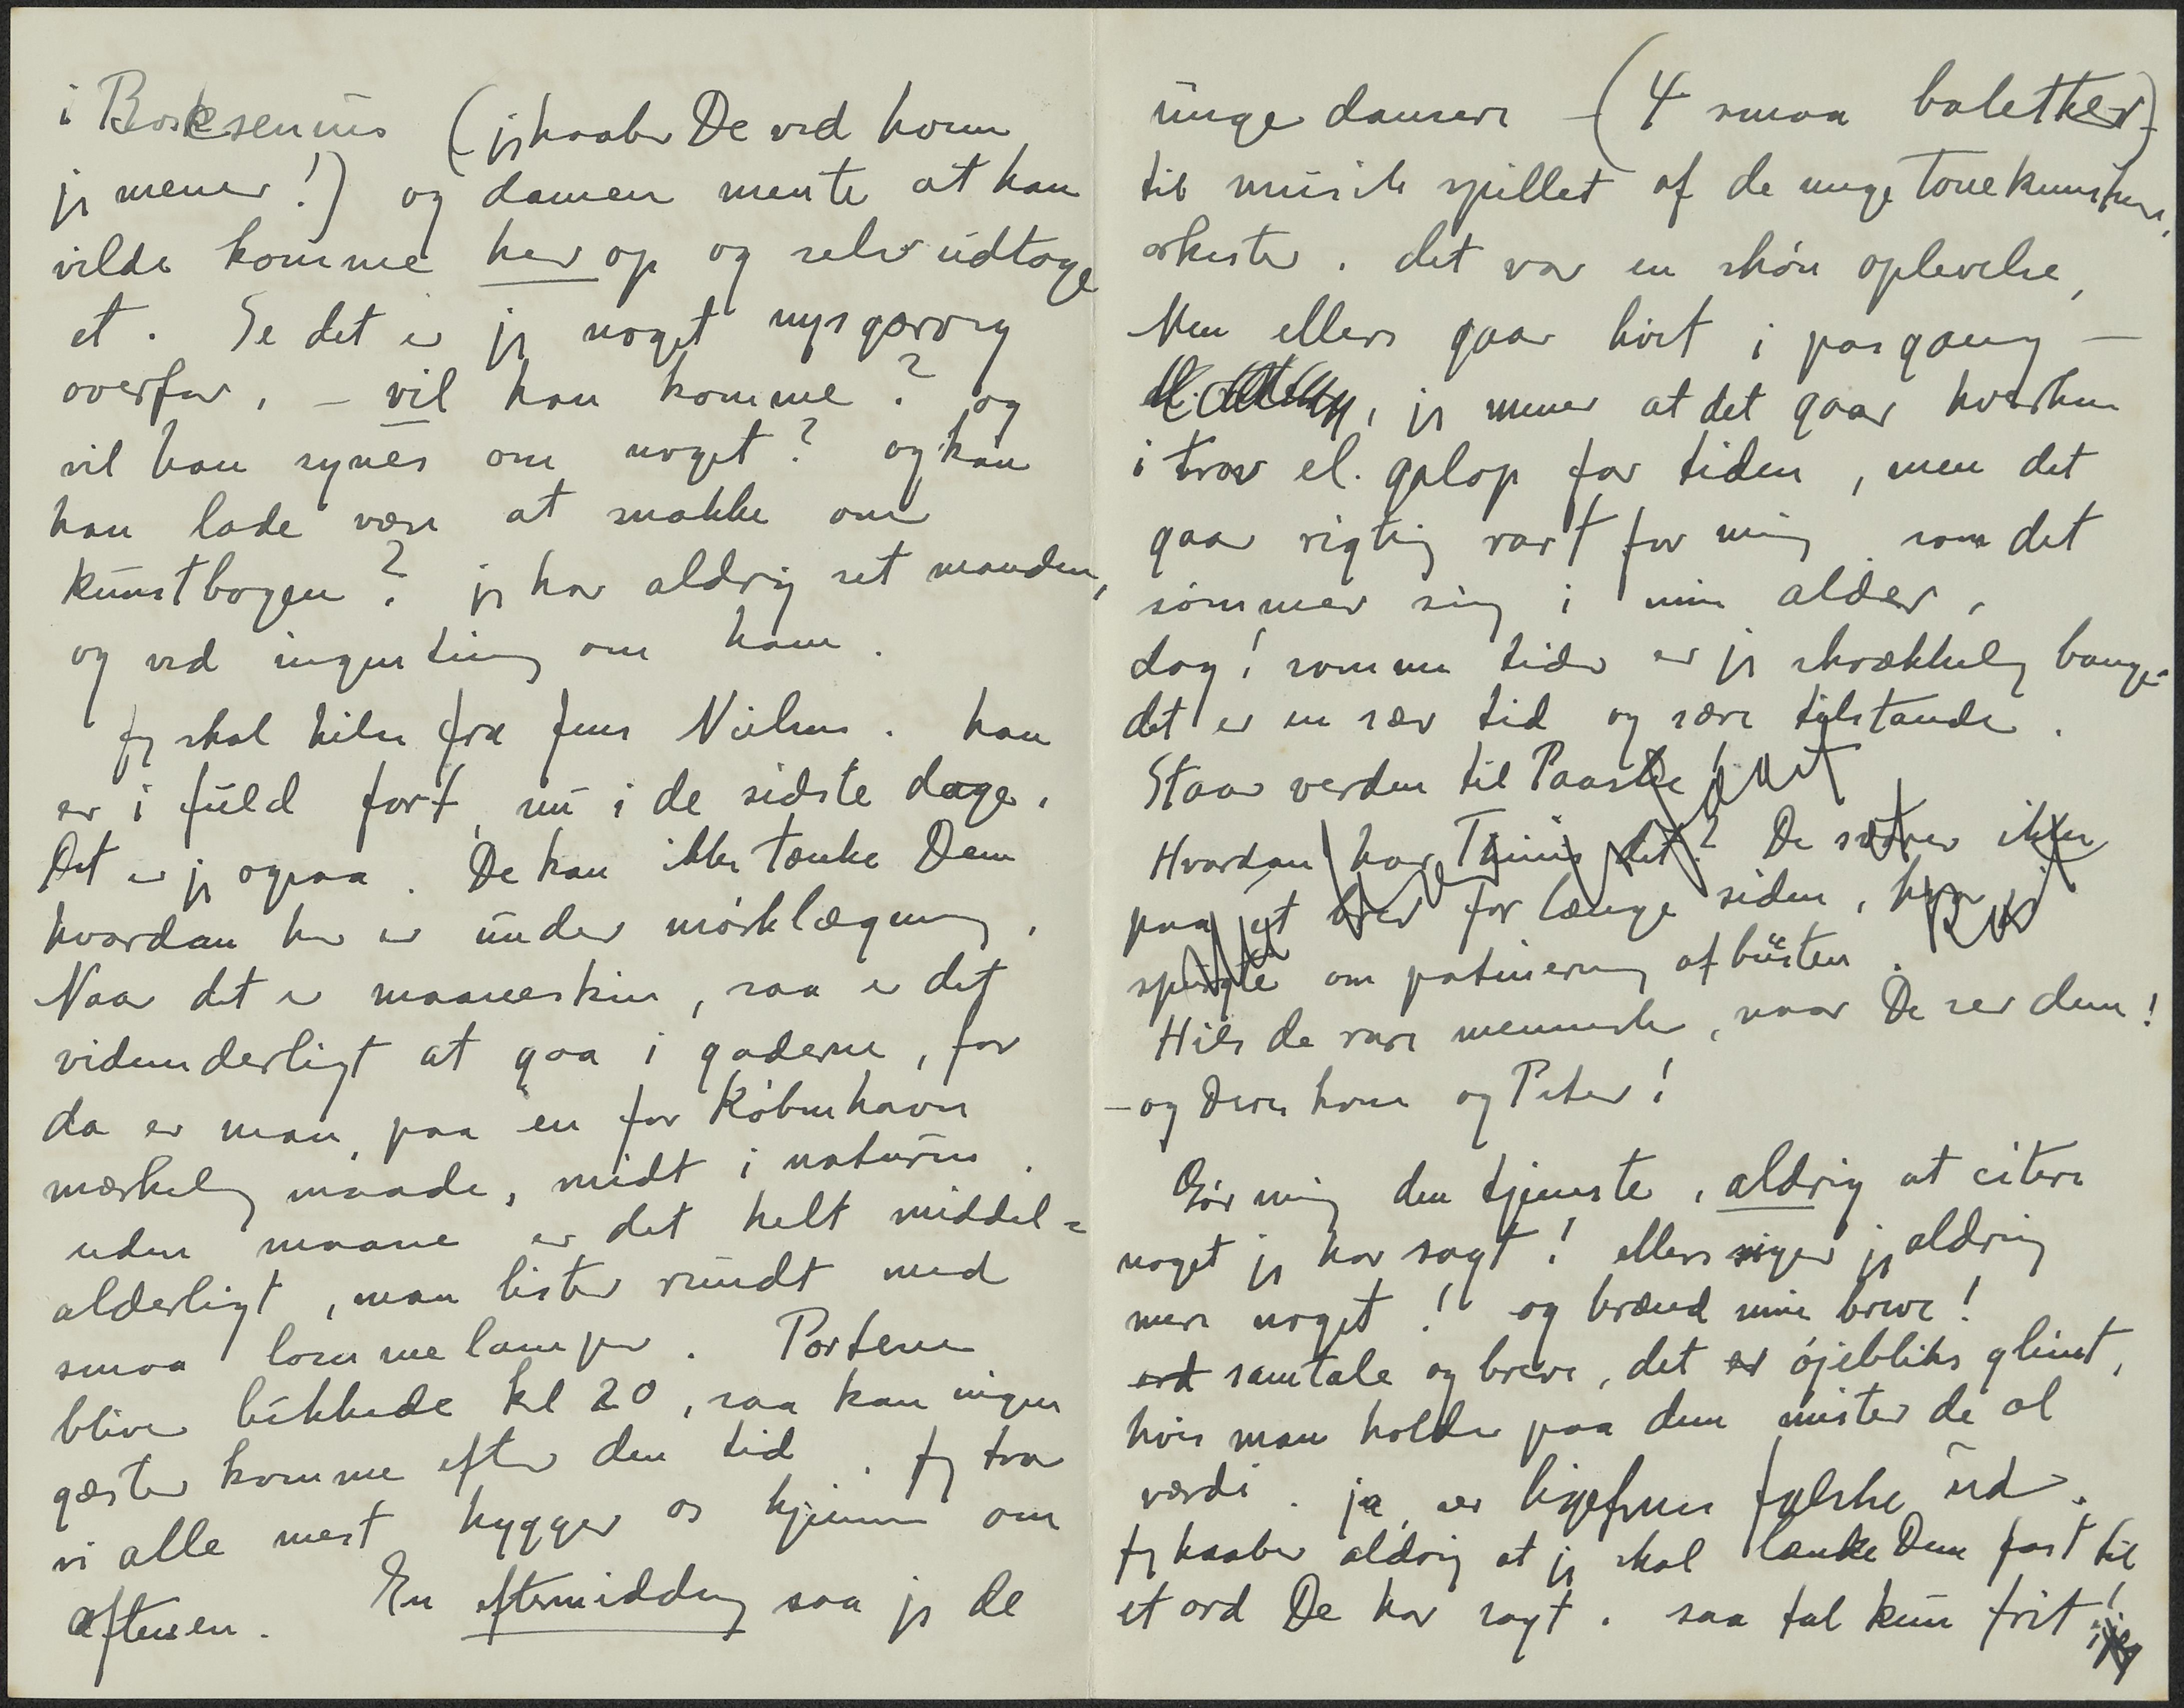 i Bosksenius (jeg haaber De ved hvem
jeg mener!) og damen mente at han
vilde komme her op og selv udtage
et. Se det er jeg noget nysgærrig
overfor, – vil han komme? og
vil han synes om noget? og kan
han lade være at snakke om
kunstbogen? jeg har aldrig set manden,
og ved ingenting om ham.
Jeg skal hilse fra Jens Nielsen. han
er i fuld fart nu i de sidste dage.
Det er jeg ogsaa. De kan ikke tænke Dem
hvordan her er under mørklægning.
Naar det er maaneskin, saa er det
vidunderligt at gaa i gaderne, for
da er man, paa en for København
mærkelig maade, midt i naturen.
uden maane er det helt middel=
alderligt, man lister rundt med
smaa lommelamper. Portene
bliver lukkede kl 20, saa kan ingen
gæster komme efter den tid. Jeg tror
vi alle mest hygger os hjemme om
aftenen. En eftermiddag saa jeg de
unge dansere – (4 smaa baletter)
til musik spillet af de unge Tonekunstneres
orkester. det var en skøn oplevelse,
Men ellers gaar livet i pasgang –
jeg mener at det gaar hverken
i trav el. galop for tiden, men det
gaar rigtig rart for mig som det
sømmer sig i min alder,
dog! somme tider er jeg skrækkelig bange.
det er en sær tid og sære tilstande.
Staar verden til Paaske
Hvordan har det? De svarer ikke
paa et brev for længe siden, hvor
spurgte om patinering af büsten.
Hils de rare mennesker, naar De ser dem!
– og Deres kone og Peter!
Gør mig den tjeneste, aldrig at citere
noget jeg har sagt! ellers siger jeg aldrig
mere noget! og brænd mine breve!
ord samtale og breve, det er øjebliks glimt,
hvis man holder paa dem mister de al
værdi. ja, ser ligefrem falske ud.
Jeg haaber aldrig at jeg skal lænke Dem fast til
et ord De har sagt. saa tal kun frit!